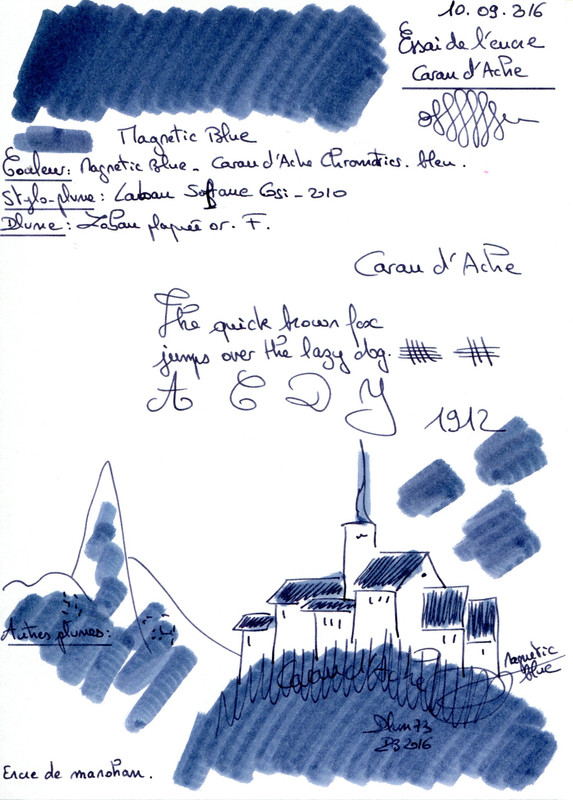 10.09.2016
Essai de l'encre
Caran d'Ache
Magnetic Blue
Couleur: Magnetic Blue - Caran d'Ache Chromatics. bleu.
Stylo-plume: Laban
Plume: Laban plaquée or. F.
Caran d'Ache
The quick brown fox
jumps over the lazy dog.
A C D Y
1912
Autres plumes:
Caran d'Ache
Magnetic
Blue
2016
Encre de